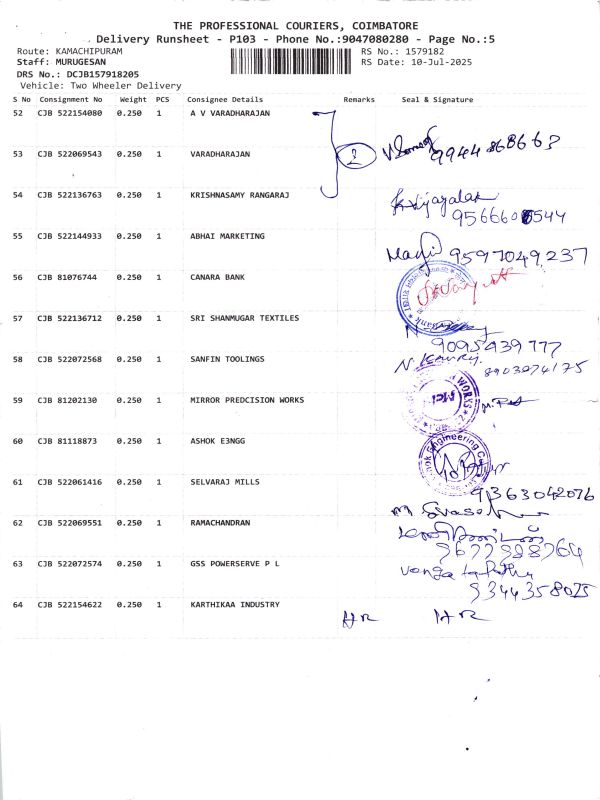 THE PROFESSIONAL COURIERS, COIMBATORE
Delivery Runsheet - P103 - Phone No.:9047080280 - Page No.:5
Route: KAMACHIPURAM RS No.: 1579182
Staff: MURUGESAN RS Date: 10-Jul-2025
DRS No.: DCJB157918205
Vehicle: Two Wheeler Delivery
S No Consignment No Weight PCS Consignee Details Remarks Seal & Signature
52 CJB 522154080 0.250 1 A V VARADHARAJAN
53 CJB 522069543 0.250 1 VARADHARAJAN 2 9944868663
54 CJB 522136763 0.250 1 KRISHNASAMY RANGARAJ
55 CJB 522144933 0.250 1 ABHAI MARKETING 9597049237
56 CJB 81076744 0.250 1 CANARA BANK
57 CJB 522136712 0.250 1 SRI SHANMUGAR TEXTILES
9095939777
58 CJB 522072568 0.250 1 SANFIN TOOLINGS
8903074175
59 CJB 81202130 0.250 1 MIRROR PREDCISION WORKS
60 CJB 81118873 0.250 1 ASHOK E3NGG
61 CJB 522061416 0.250 1 SELVARAJ MILLS
9363042076
62 CJB 522069551 0.250 1 RAMACHANDRAN
63 CJB 522072574 0.250 1 GSS POWERSERVE P L
9344358025
64 CJB 522154622 0.250 1 KARTHIKAA INDUSTRY